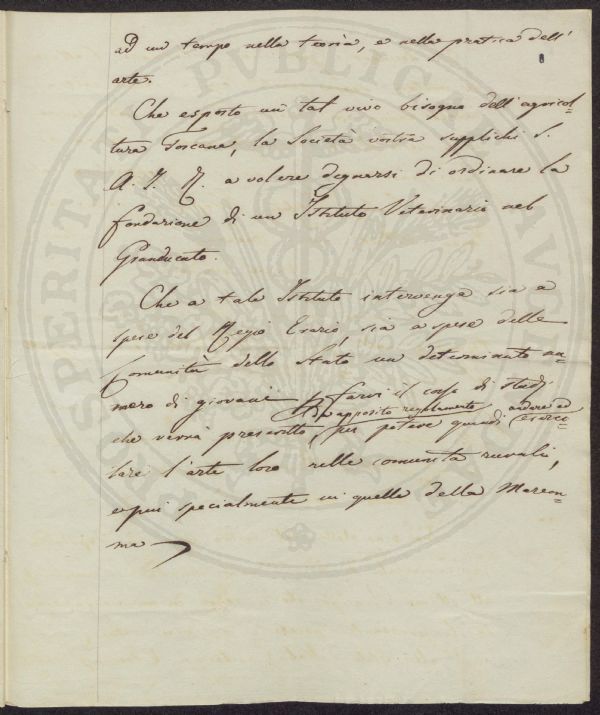 ad un tempo nella teoria, e nella pratica dell'
arte.
Che esposto un tal vivo bisogno dell'agricol=
tura Toscana, la Società vostra supplichi S.
A. I. R. a volere degnarsi di ordinare la
fondazione di un Istituto Veterinario nel
Granducato.
Che a tale Istituto intervenga sia a
spese del Regio Erario, sia a spese delle
Comunità dello Stato un determinato nu=
mero di giovani p farvi il corso di studj
che verrà prescritto, da apposito regolamento per potere quindi andare ed eserci=
tare l'arte loro nelle comunità rurali,
e più specialmente in quelle della Marem=
ma
PROSPERITATI PUBLICAE AUGENDAE